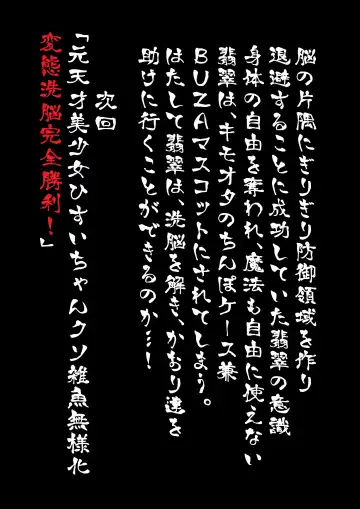 脳の片隅にぎりぎり防御領域を作り
退避することに成功していた翡翠の意識
身体の自由を奪われ、魔法も自由に使えない
翡翠は、キモオタのちんぽケース兼
BUZAマスコットにされてしまう。
はたして翡翠は、洗脳を解き、かおり達を
助けに行くことができるのか…!
次回
「元天才美少女ひすいちゃんクソ雑魚無様化
変態洗脳完全勝利!」